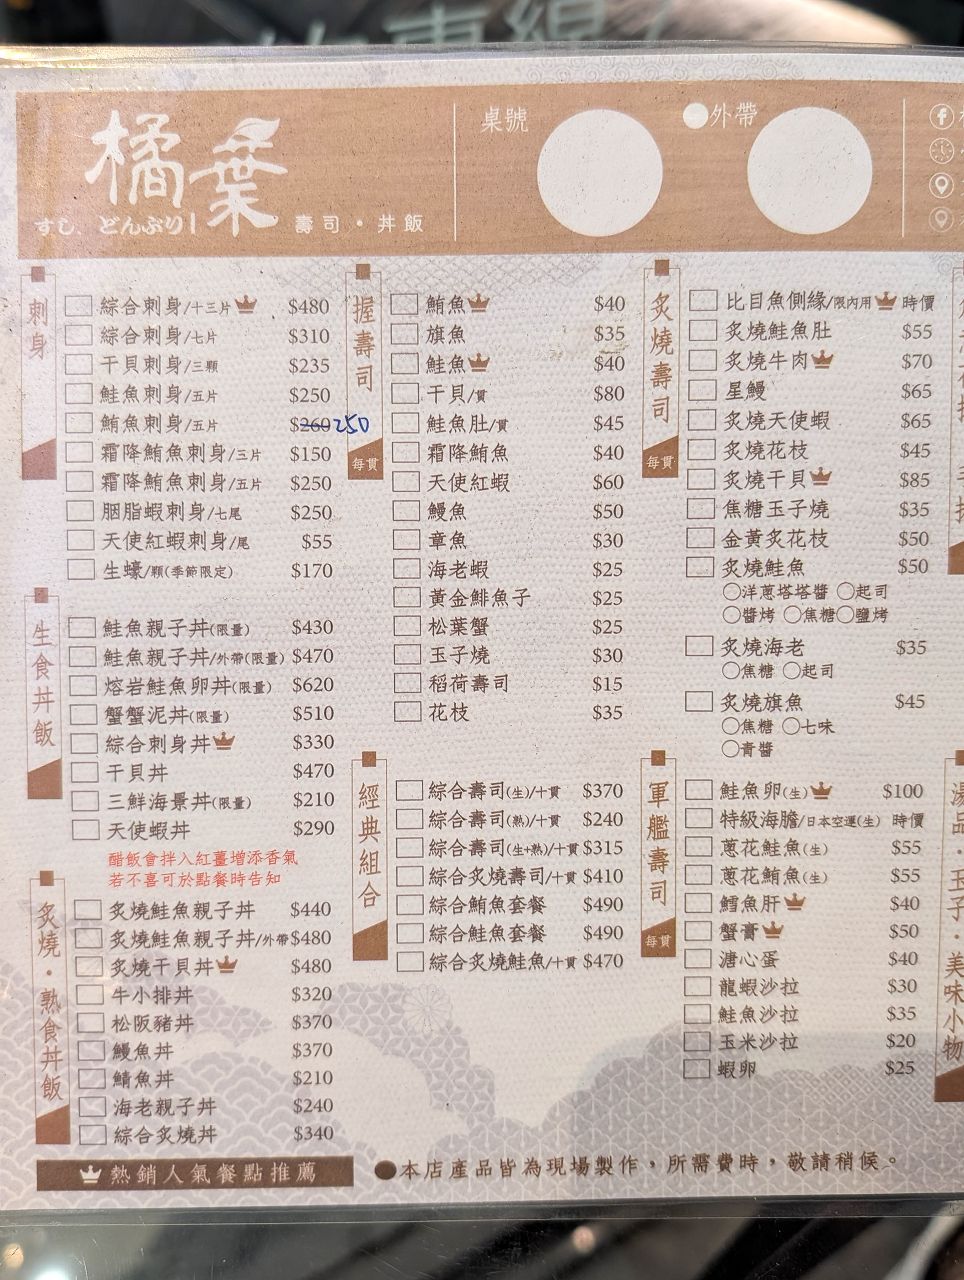 橘葉
すし、どんぶり | 壽司・丼飯
桌號
外帶
刺身
綜合刺身/十三片 $480
綜合刺身/七片 $310
干貝刺身/三顆 $235
鮭魚刺身/五片 $250
鮪魚刺身/五片 $260 250
霜降鮪魚刺身/三片 $150
霜降鮪魚刺身/五片 $250
胭脂蝦刺身/七尾 $250
天使紅蝦刺身/尾 $55
生蠔/顆(季節限定) $170
生食丼飯
鮭魚親子丼(限量) $430
鮭魚親子丼/外帶(限量) $470
熔岩鮭魚卵丼(限量) $620
蟹蟹泥丼(限量) $510
綜合刺身丼 $330
干貝丼 $470
三鮮海景丼(限量) $210
天使蝦丼 $290
醋飯會拌入紅薑增添香氣
若不喜可於點餐時告知
炙燒・熟食丼飯
炙燒鮭魚親子丼 $440
炙燒鮭魚親子丼/外帶 $480
炙燒干貝丼 $480
牛小排丼 $320
松阪豬丼 $370
鰻魚丼 $370
鯖魚丼 $210
海老親子丼 $240
綜合炙燒丼 $340
熱銷人氣餐點推薦
握壽司
每貫
鮪魚 $40
旗魚 $35
鮭魚 $40
干貝/貫 $80
鮭魚肚/貫 $45
霜降鮪魚 $40
天使紅蝦 $60
鰻魚 $50
章魚 $30
海老蝦 $25
黃金鯡魚子 $25
松葉蟹 $25
玉子燒 $30
稻荷壽司 $15
花枝 $35
經典組合
綜合壽司(生)/十貫 $370
綜合壽司(熟)/十貫 $240
綜合壽司(生+熟)/十貫 $315
綜合炙燒壽司/十貫 $410
綜合鮪魚套餐 $490
綜合鮭魚套餐 $490
綜合炙燒鮭魚/十貫 $470
炙燒壽司
每貫
比目魚側緣/限內用 時價
炙燒鮭魚肚 $55
炙燒牛肉 $70
星鰻 $65
炙燒天使蝦 $65
炙燒花枝 $45
炙燒干貝 $85
焦糖玉子燒 $35
金黃炙花枝 $50
炙燒鮭魚 $50
洋蔥塔塔醬 起司
醬烤 焦糖 鹽烤
炙燒海老 $35
焦糖 起司
炙燒旗魚 $45
焦糖 七味
青醬
軍艦壽司
每貫
鮭魚卵(生) $100
特級海膽/日本空運(生) 時價
蔥花鮭魚(生) $55
蔥花鮪魚(生) $55
鱈魚肝 $40
蟹膏 $50
溏心蛋 $40
龍蝦沙拉 $30
鮭魚沙拉 $35
玉米沙拉 $20
蝦卵 $25
湯品・玉子・美味小物
●本店產品皆為現場製作，所需費時，敬請稍候。